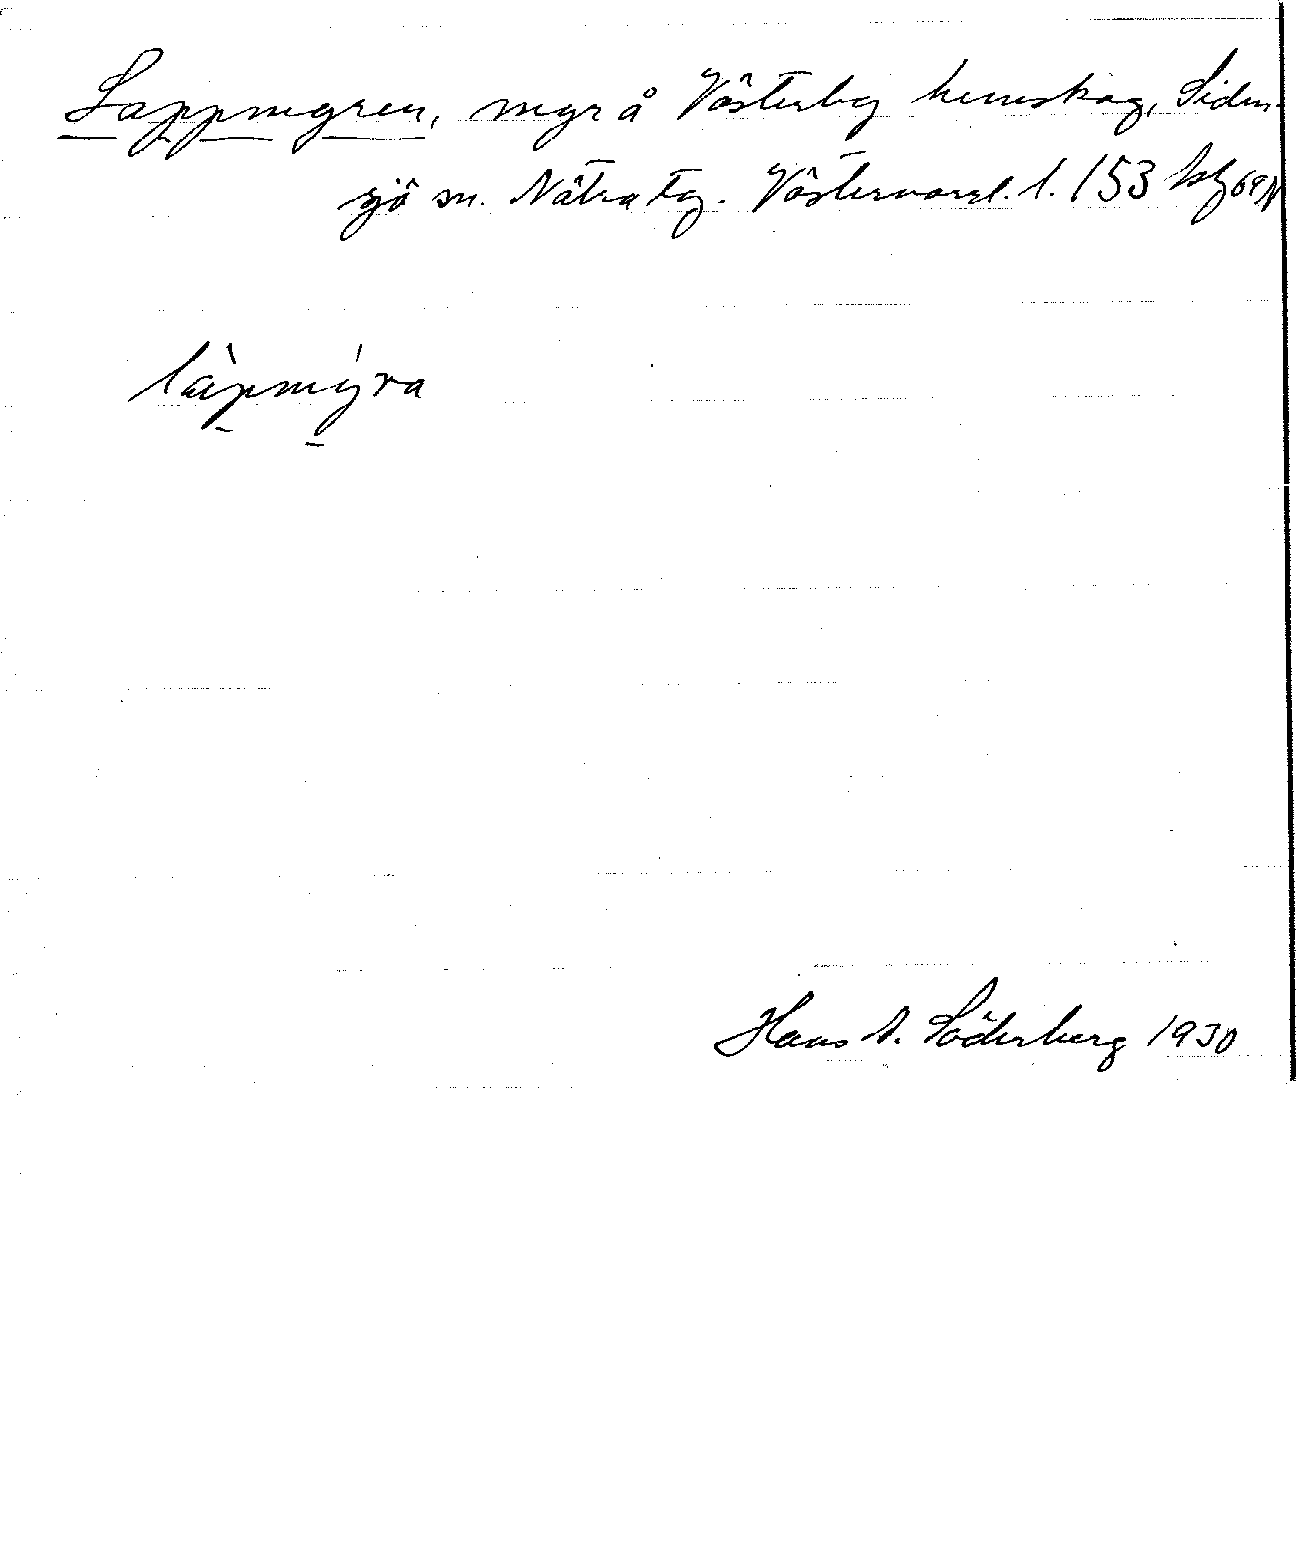 Lappmyren, myr å Västerby hemskog, Siden-
sjö sn. Nätra tg. Västernorrl. l. 153
làpmýra
Hans A. Söderberg 1930